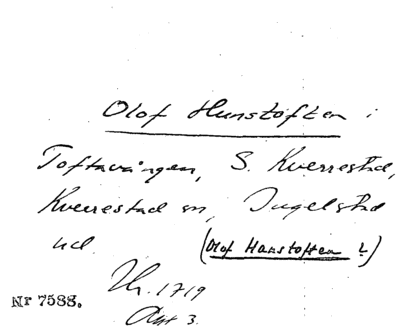 Olof Hunstoften i
Toftavången, S. Kverrestad,
Kverrestad sn, Ingelstad
hd. (Olof Hanstoften ?)
Nr 7588.
1719
Akt 3.